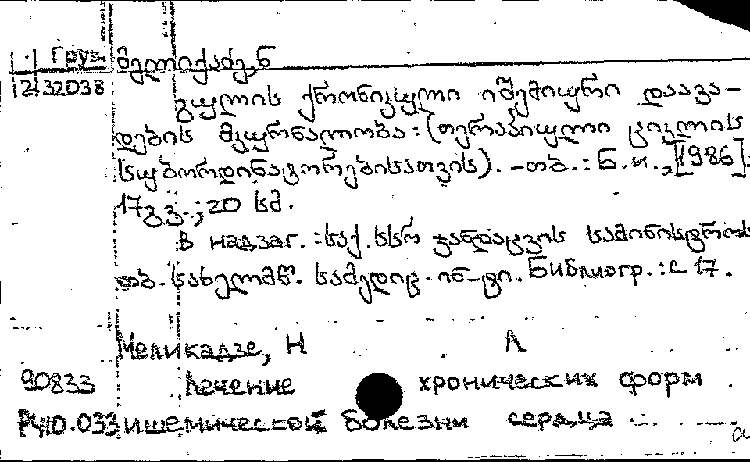 Груз. მელიქაძე, ნ
2-32038
გულის ქრონიკული იშემიური დაავა-
დების მკურნალობა : (თერაპიული ციკლის
სუბორდინატორებისათვის). - თბ. : Б. и., [1986].
17 გვ. ; 20 სმ.
В надзаг. : საქ. სსრ ჯანდაცვის სამინისტრო.
თბ. სახელმწ. სამედიც. ინ-ტი. Библиогр. : с 17.
Меликадзе, Н Л
90833 Лечение хронических форм
РУ10.033 ишемической болезни сердца